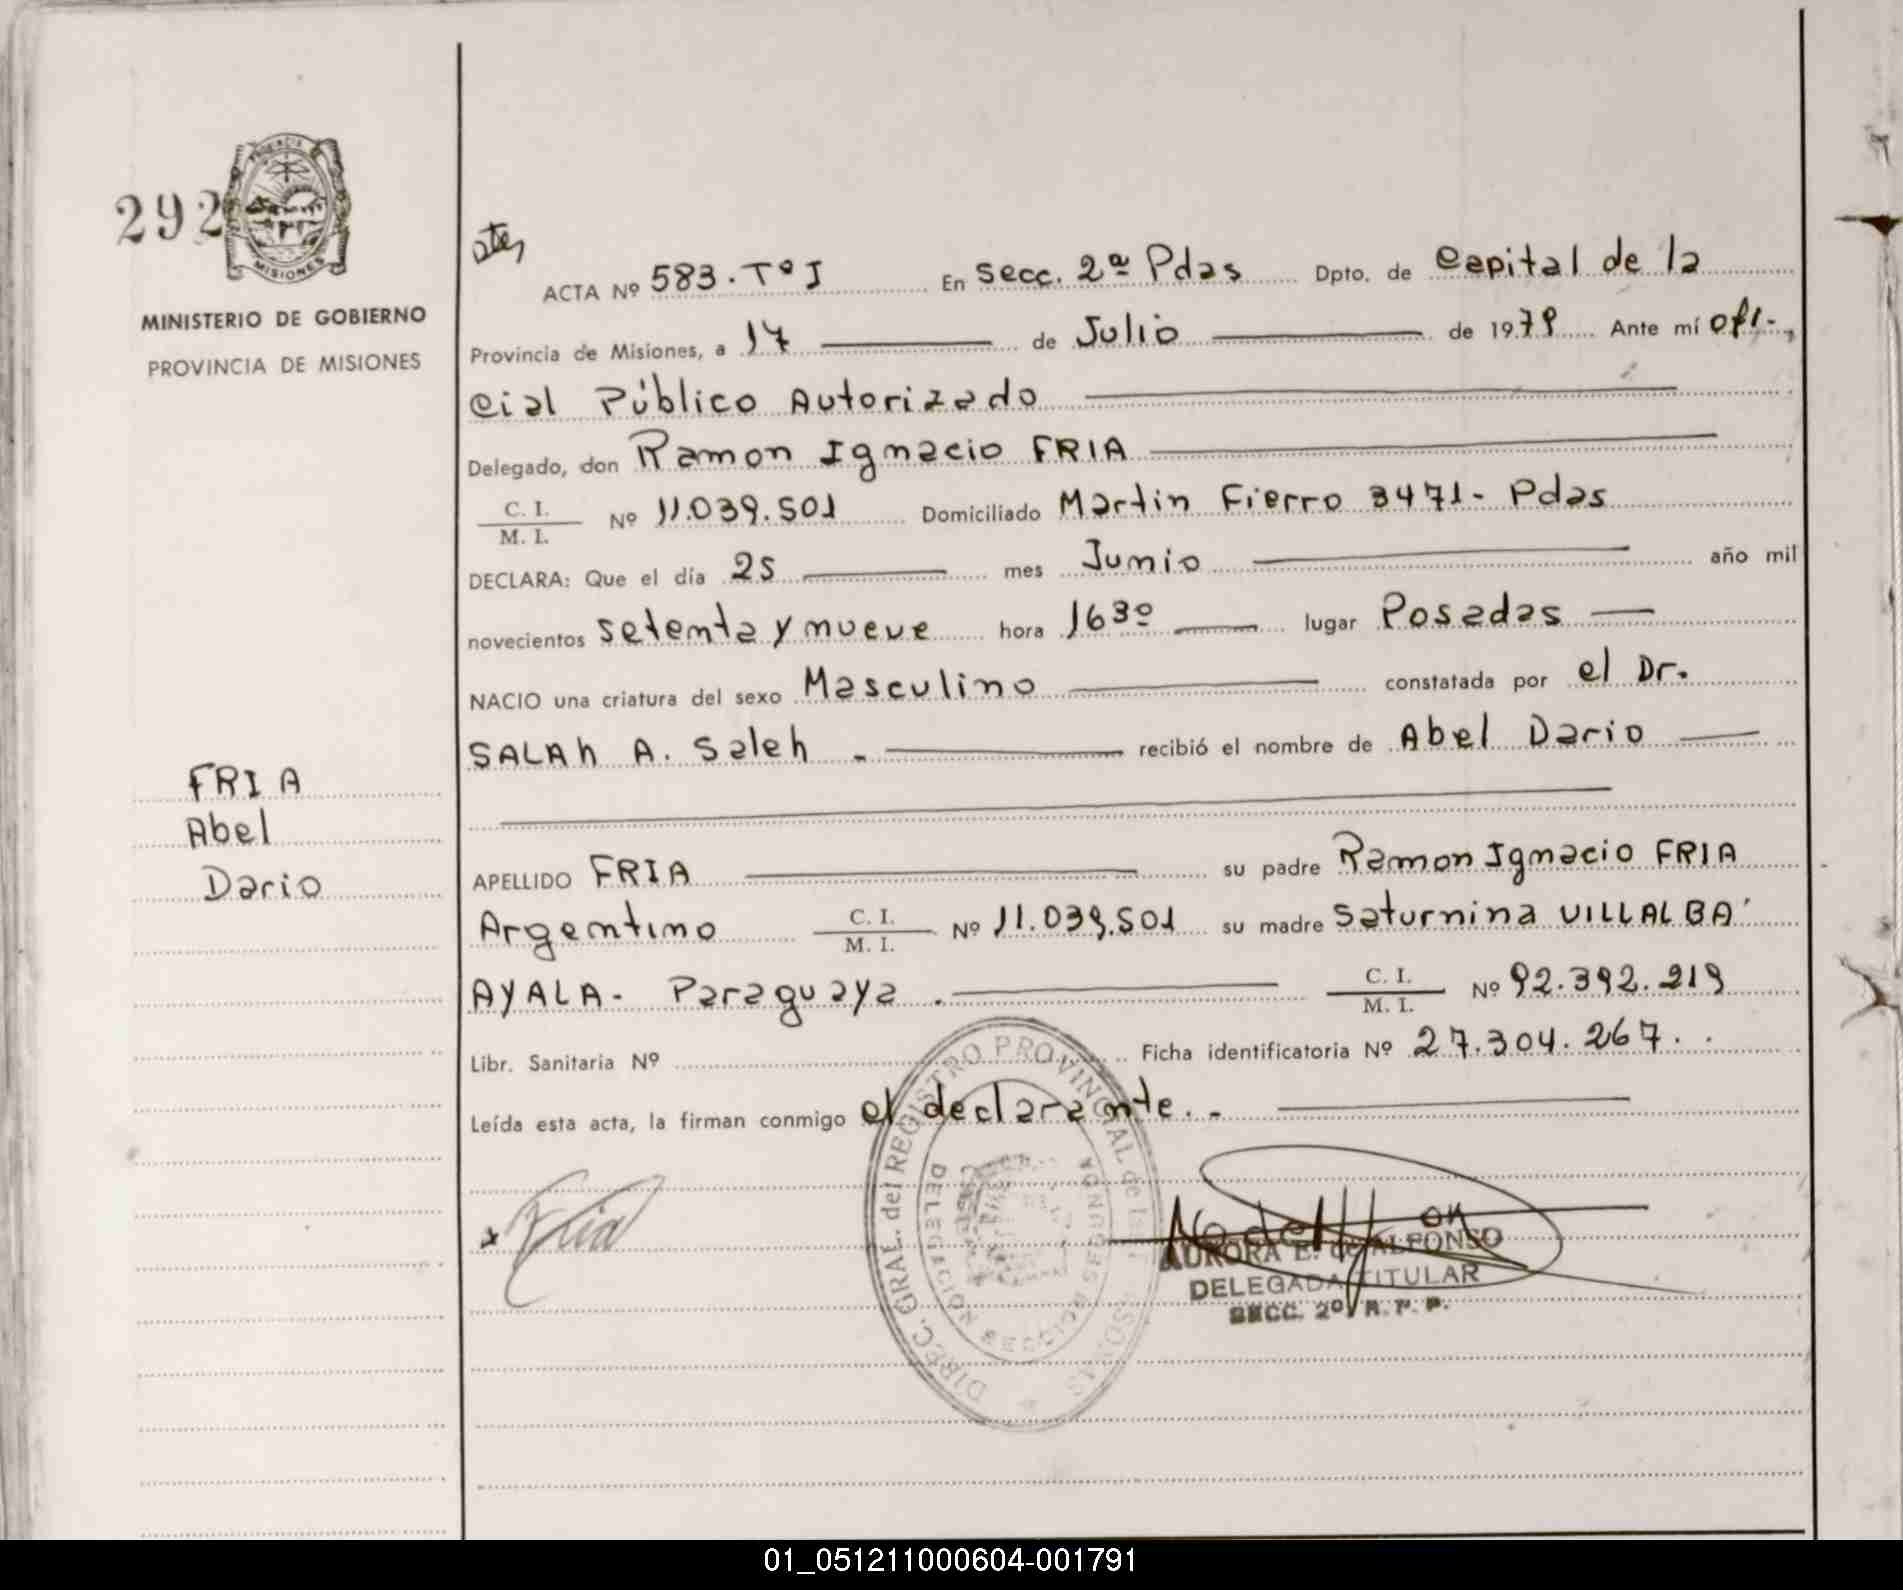 292
PROVINCIA DE
MISIONES
MINISTERIO DE GOBIERNO
PROVINCIA DE MISIONES
FRIA
Abel
Dario
ACTA Nº 583. Tº I En Secc. 2ª Pdas Dpto. de Capital de la
Provincia de Misiones, a 17 de Julio de 1979 Ante mí ofi-
cial Público Autorizado
Delegado, don Ramon Ignacio FRIA
C. I. / M. I. Nº 11.039.501 Domiciliado Martin Fierro 3471- Pdas
DECLARA: Que el día 25 mes Junio año mil
novecientos setenta y nueve hora 16³º lugar Posadas
NACIO una criatura del sexo Masculino constatada por el Dr.
SALAh A. Saleh .- recibió el nombre de Abel Dario
APELLIDO FRIA su padre Ramon Ignacio FRIA
Argentino C. I. / M. I. Nº 11.039.501 su madre Saturnina VILLALBA
AYALA- Paraguaya . C. I. / M. I. Nº 92.392.219
Libr. Sanitaria Nº Ficha identificatoria Nº 27.304.267.
Leída esta acta, la firman conmigo el declarante. -
DIREC. GRAL. del REGISTRO PROVINCIAL de las
DELEGACION SECCION SEGUNDA
POSADAS
Fria
AURORA E. de ALFONSO
DELEGADA TITULAR
SECC. 2º R. P. P.
01_051211000604-001791